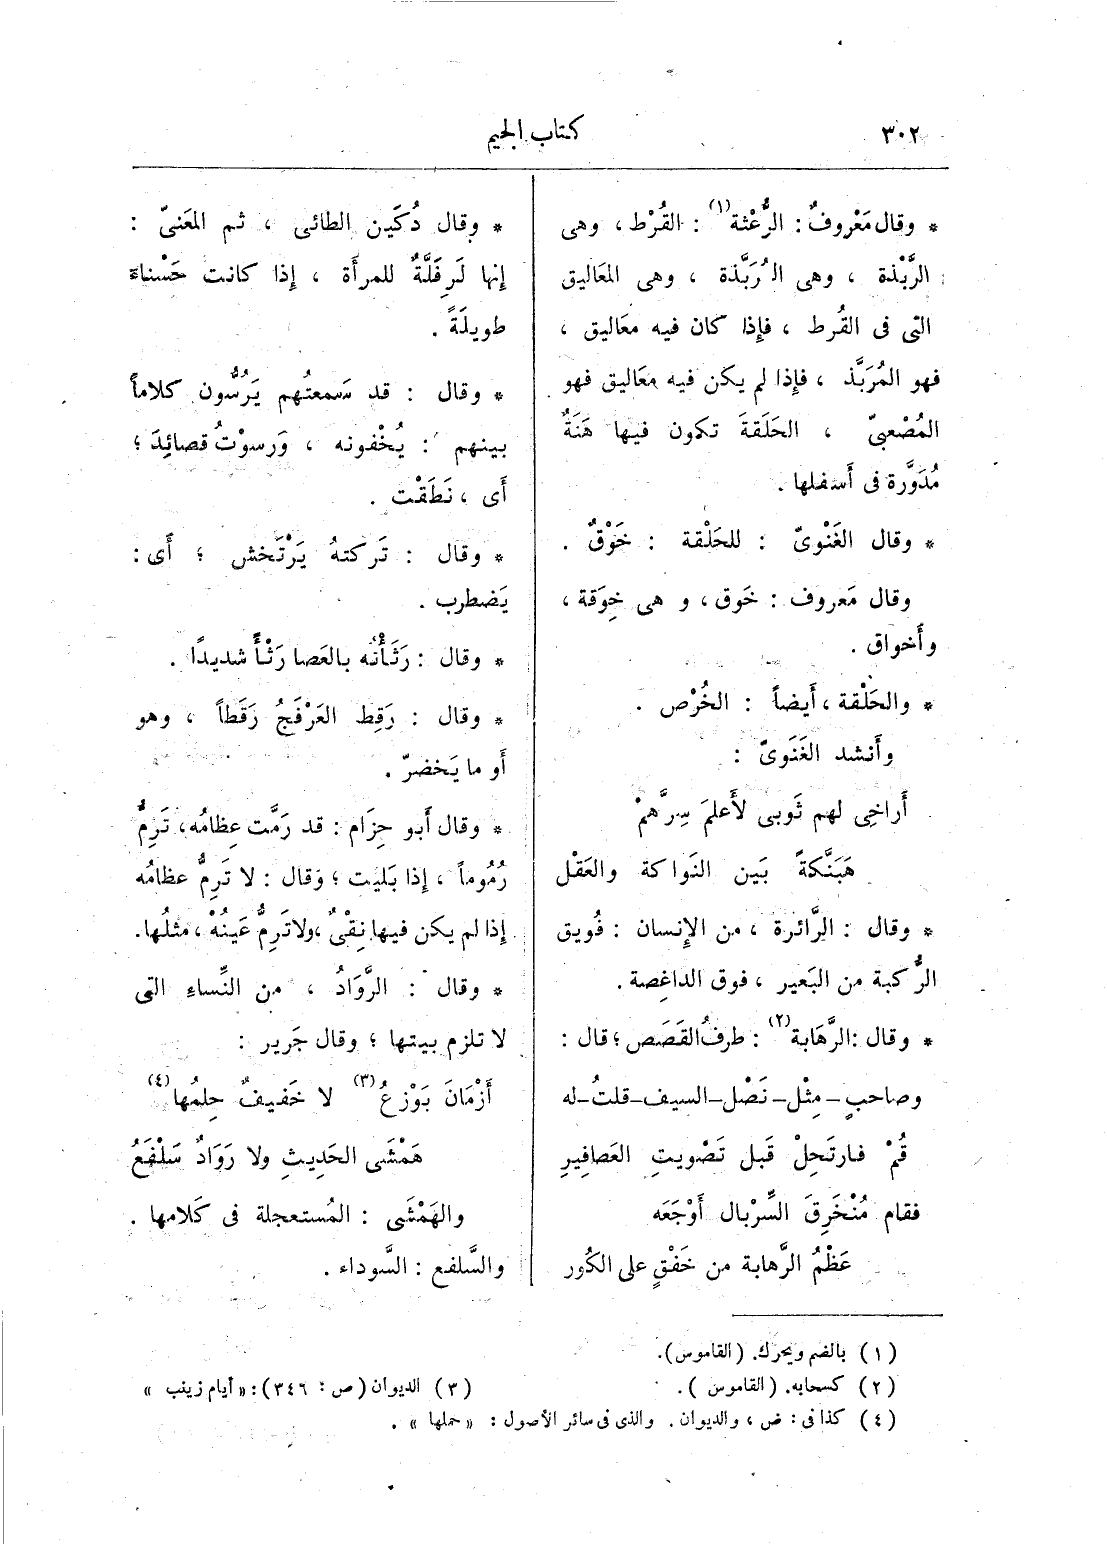 ٣٠٢
كتاب الجيم
* وقال مَعْروفٌ : الرُّعْثة (١) : القُرْط ، وهى
الرَّبْذة ، وهى الرُبَّذة ، وهى المَعَاليق
التى فى القُرط ، فإِذا كان فيه معَاليق ،
فهو المُرَبَّذ ، فإِذا لم يكن فيه معَاليق فهو
المُصْعبىّ ، الحَلَقةَ تكون فيها هَنَةٌ
مُدَوَّرة فى أَسفلها .
* وقال الغَنْوىّ : للحَلْقة : خَوْقٌ .
وقال مَعروف : خَوق ، و هى خِوَقة ،
وأَخواق .
* والحَلْقة ، أَيضاً : الخُرْص .
وأَنشد الغَنَوىّ :
أُراخِى لهم ثَوبى لأَعلمَ سِرَّهمْ
هَبَنَّكةً بَين النَواكة والعَقْل
* وقال : الرَّائرة ، من الإِنسان : فُويق
الرُّكبة من البَعير ، فوق الداغِصة .
* وقال : الرَّهَابة (٢) : طرفُ القَصَص ؛ قال :
وصاحبٍ مِثْل نَصْل السيف قلتُ له
قُمْ فارتَحِلْ قَبل تَصْويتِ العَصافِيرِ
فقام مُنْخَرِقَ السِّرْبال أَوْجَعَه
عَظْمُ الرَّهابة من خَفْقٍ على الكُور
* وقال دُكَين الطائى ، ثم المَعَنىّ :
إِنها لَرِفَلَّةٌ للمرأَة ، إِذا كانت حَسْناءَ
طويلَةً .
* وقال : قد سَمعتُهم يَرُسُّون كلاماً
بينهم : يُخْفونه ، وَرسوْتُ قصائِدَ ؛
أَى ، نَطَقْت .
* وقال : تَركتهُ يَرْتَخش ؛ أَى :
يَضطرب .
* وقال : رَثَأْتُه بالعَصا رَثْأً شديدًا .
* وقال : رَقِط العَرْفَجُ رَقَطاً ، وهو
أَو ما يَخضرّ .
* وقال أَبو حِزام : قد رَمَّت عِظامُه ، تَرِمُّ
رُمُوماً ، إِذا بَليت ؛ وَقال : لا تَرِمُّ عظامُه
إِذا لم يكن فيها نِقْىٌ ، ولا تَرِمُّ عَينُهْ ، مثلُها.
* وقال : الرَّوَادُ ، من النِّساءِ التى
لا تلزم بيتها ؛ وقال جَرير :
أَزْمَانَ بَوْزعُ (٣) لا خَفيفٌ حِلمُها (٤)
هَمْشَى الحَديثِ ولا رَوَادٌ سَلْفَعُ
والهَمْشَى : المُستعجلة فى كَلامها .
والسَّلفع : السَّوداء .
(١) بالضم ويحرّك. (القاموس).
(٢) كسحابه. (القاموس ).
(٣) الديوان (ص : ٣٤٦) : « أيام زينب »
(٤) كذا فى : ض ، والديوان . والذى فى سائر الأصول : « حملها » .